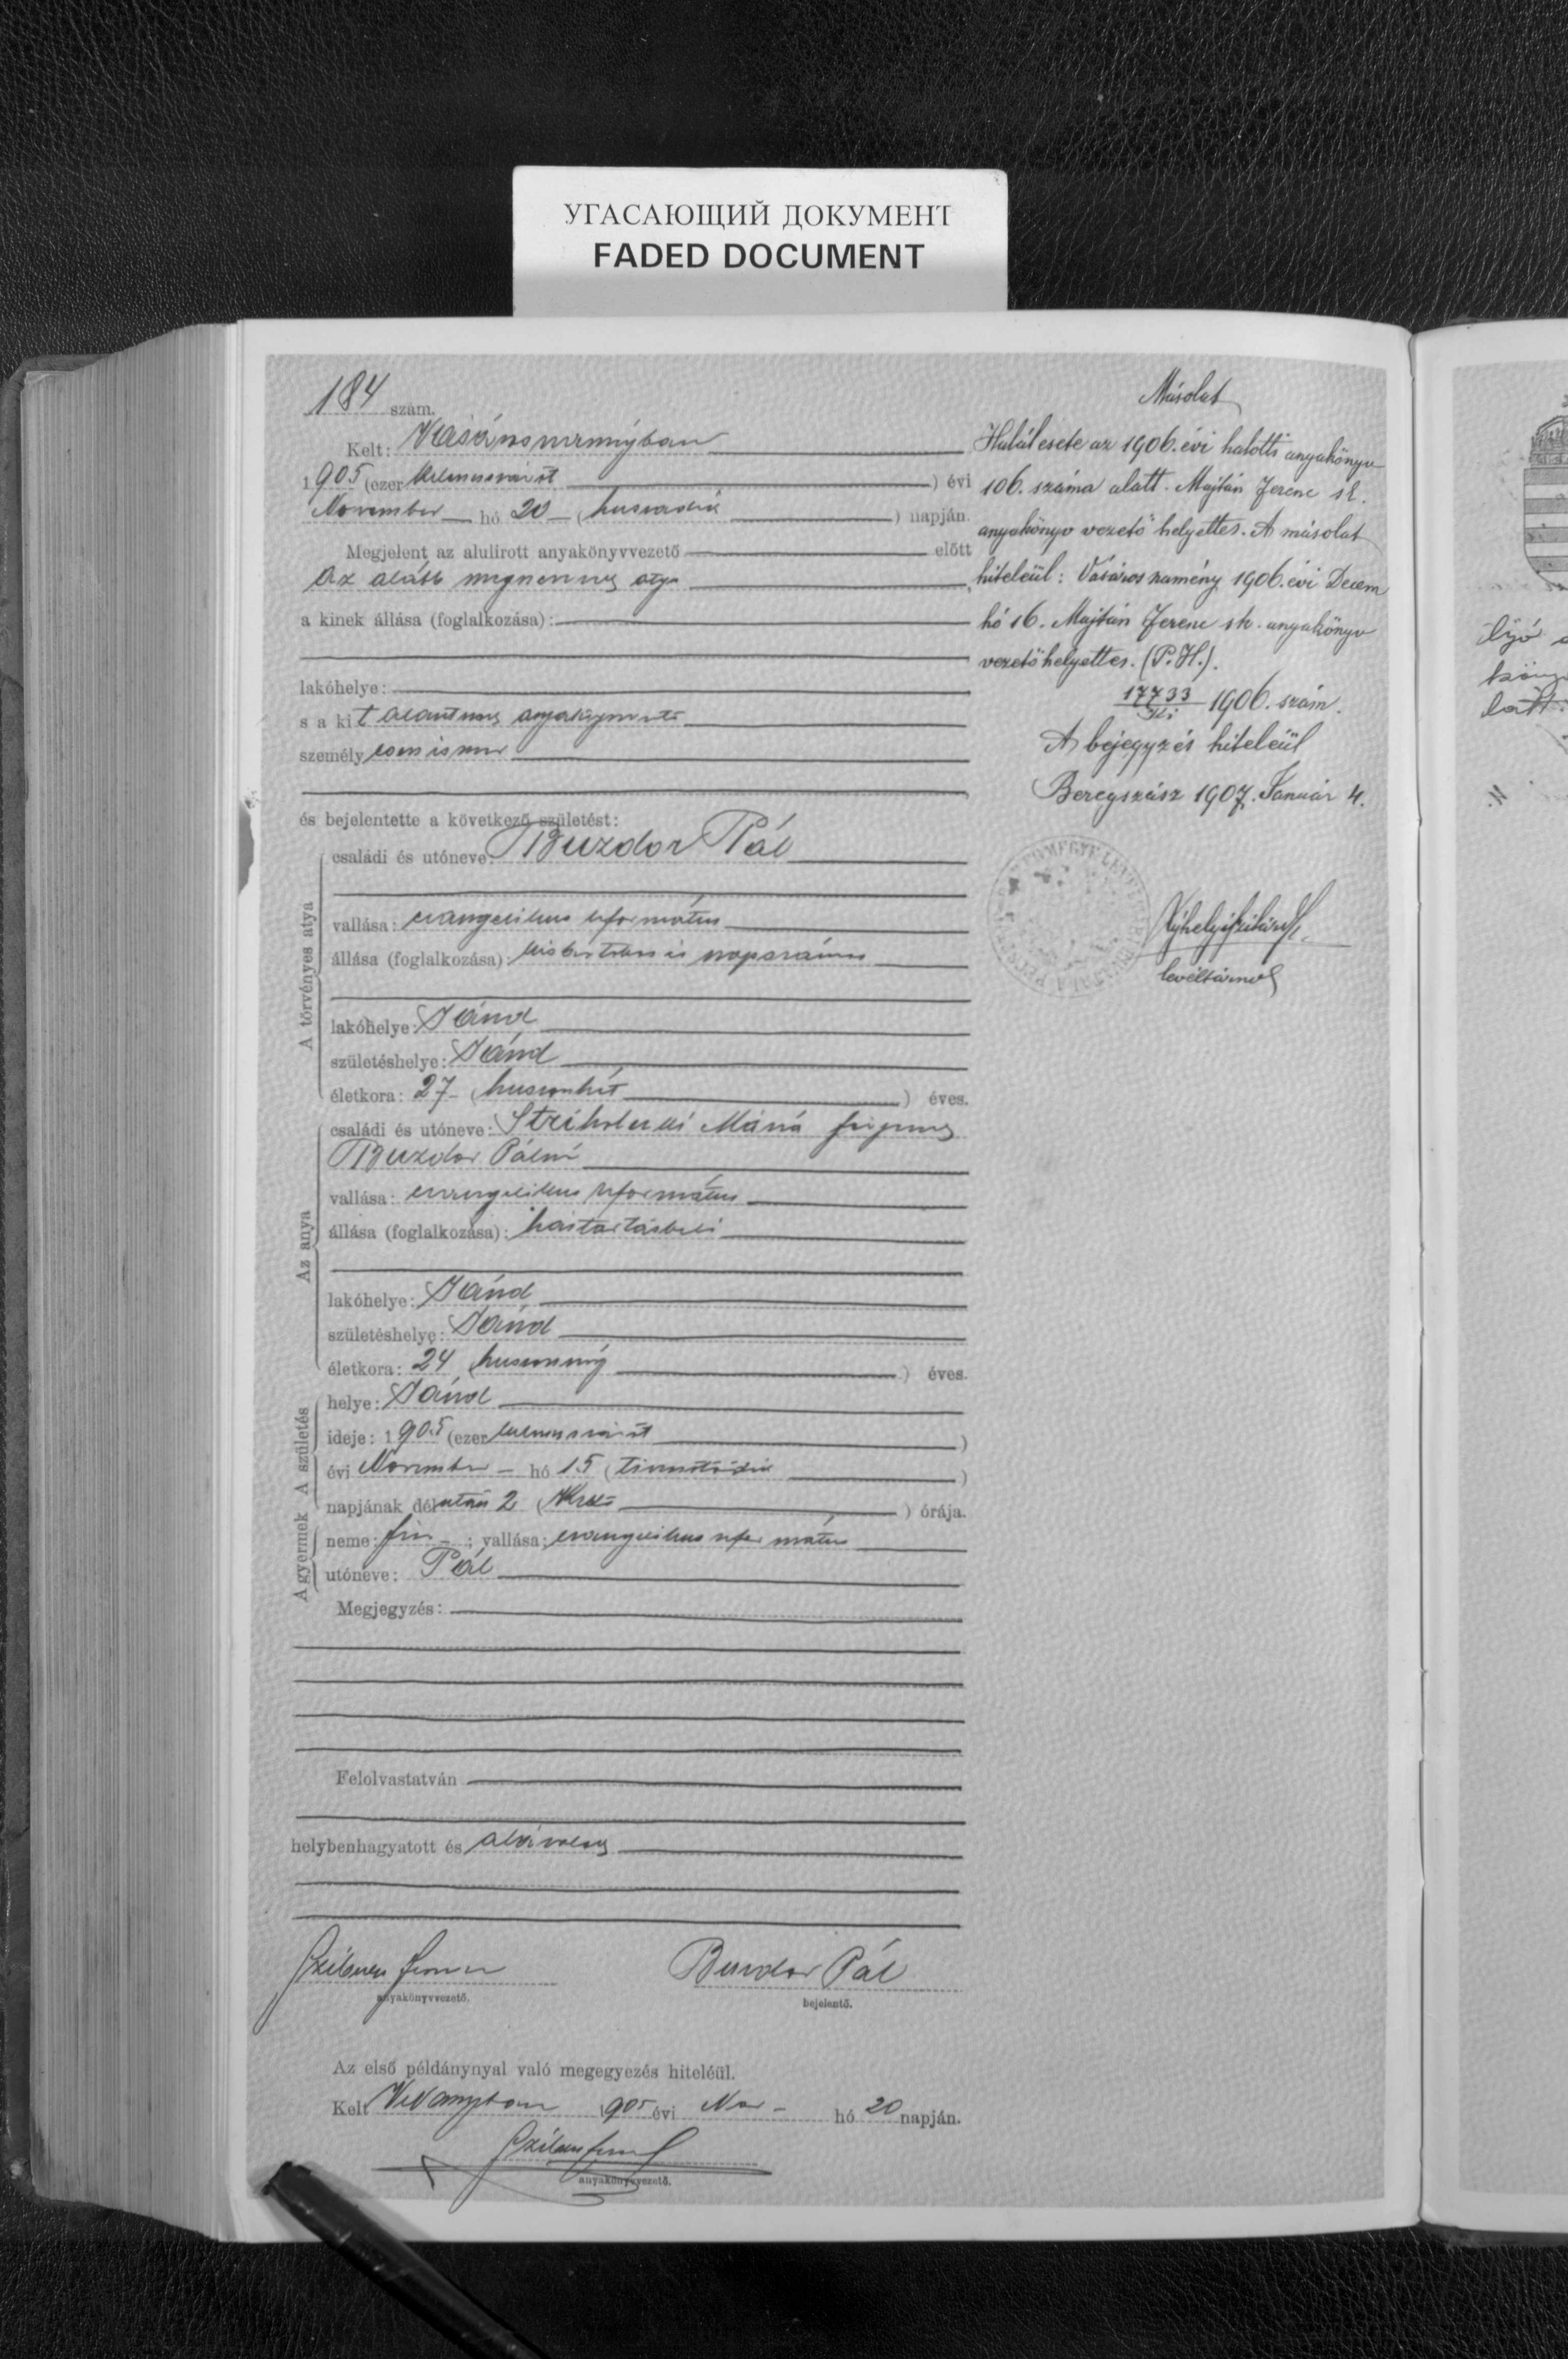 УГАСАЮЩИЙ ДОКУМЕНТ
FADED DOCUMENT
184 szám.
Kelt: Vásárosnaményban
1905 (ezer kilencszázöt) évi
November hó 20 (huszadik) napján.
Megjelent az alulirott anyakönyvvezető előtt
az alább megnevezett atya
a kinek állása (foglalkozása):
lakóhelye:
s a kit alantirott anyakönyvvezető
személyesen ismer
és bejelentette a következő születést:
A törvényes atya
családi és utóneve: Buzdor Pál
vallása: evangelikus református
állása (foglalkozása): kisbirtokos és napszámos
lakóhelye: Jánd
születéshelye: Jánd
életkora: 27 (huszonhét) éves.
Az anya
családi és utóneve: Mária férjezett
Buzdor Pálné
vallása: evangelikus református
állása (foglalkozása): háztartásbeli
lakóhelye: Jánd
születéshelye: Jánd
életkora: 24 (huszonnégy) éves.
A születés
helye: Jánd
ideje: 1905 (ezer kilencszázöt)
évi November hó 15 (tizenötödik)
napjának délután 2 (kettő) órája.
A gyermek
neme: fiu; vallása: evangelikus református
utóneve: Pál
Megjegyzés:
Felolvastatván
helybenhagyatott és aláiratott
anyakönyvvezető.
Buzdor Pál
bejelentő.
Az első példánynyal való megegyezés hiteléül.
Kelt 1905 évi Nov hó 20 napján.
anyakönyvvezető.
Másolat
Halálesete az 1906. évi halotti anyakönyv
106. száma alatt. Majtán Ferenc sk.
anyakönyv vezető helyettes. A másolat
hiteleül: Vásárosnamény 1906. évi Decem
hó 16. Majtán Ferenc sk. anyakönyv
vezető helyettes. (P.H.).
17733 1906. szám.
Ki
A bejegyzés hiteleül
Beregszász 1907. Január 4.
levéltárnok